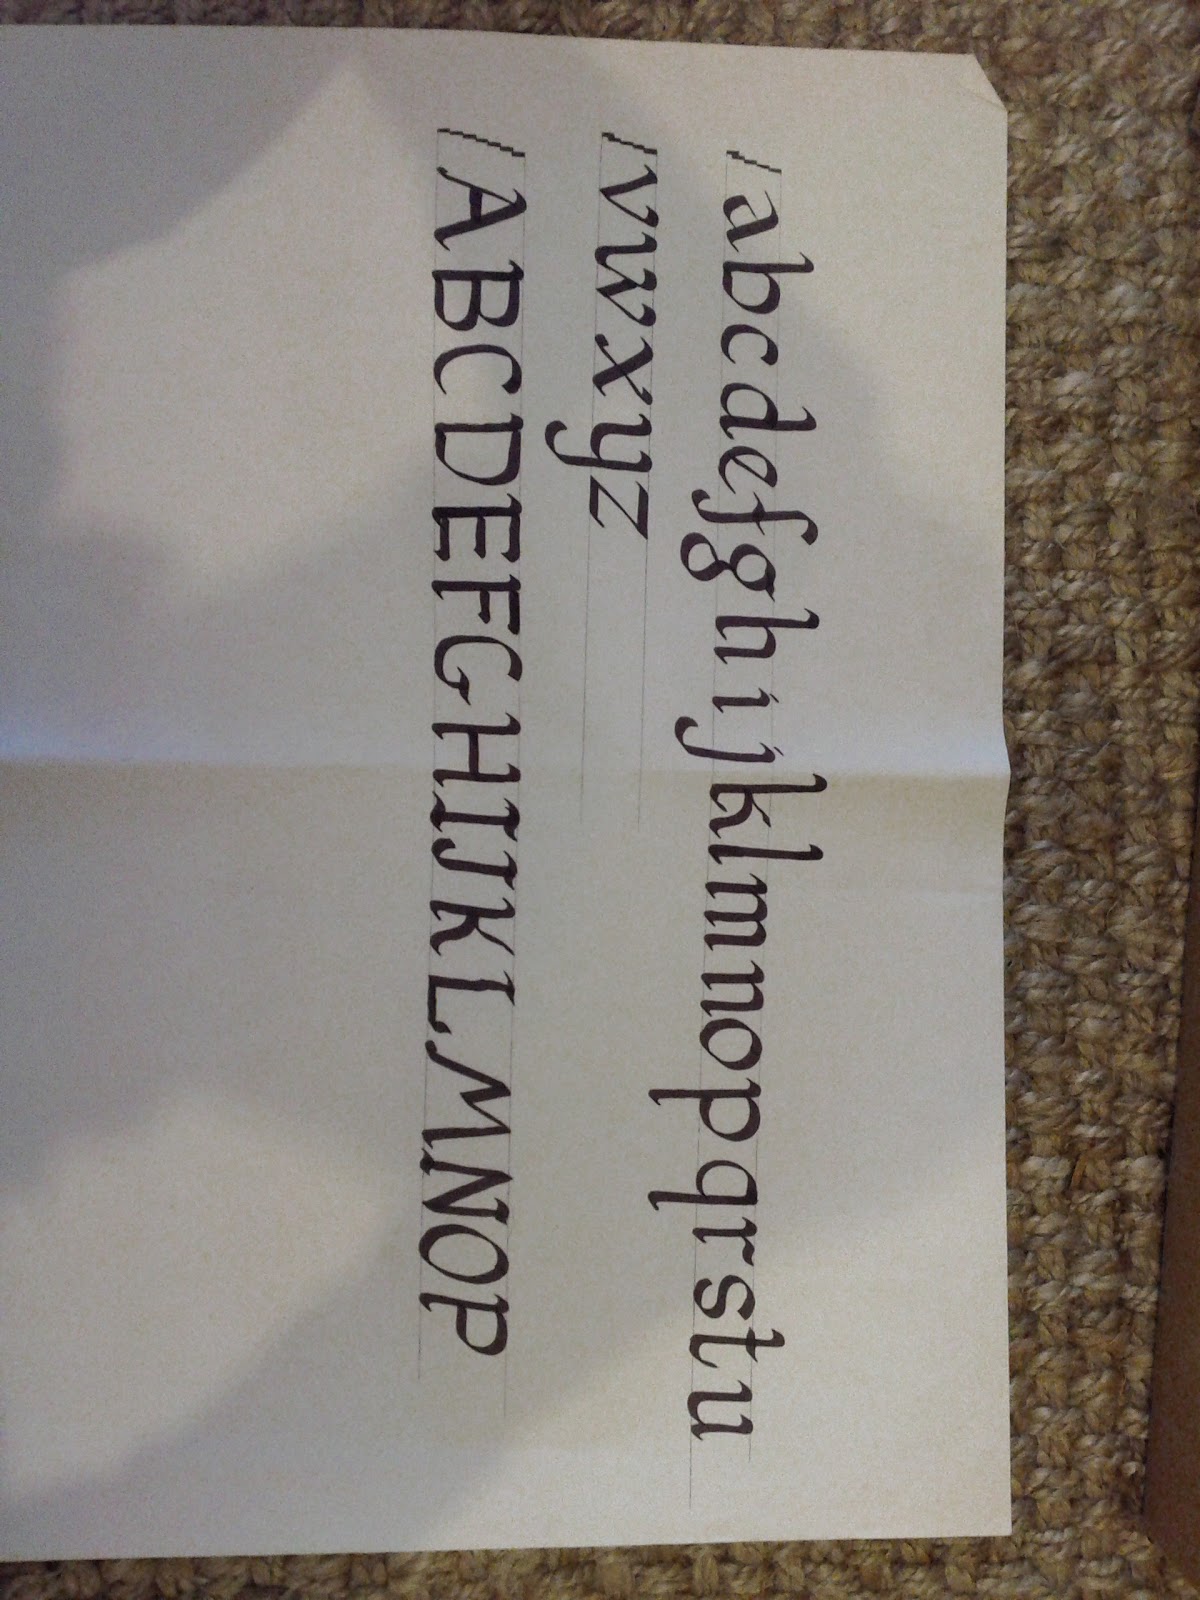 abcdefghijklmnopqrstu
vwxyz
ABCDEFGHIJKLMNOP